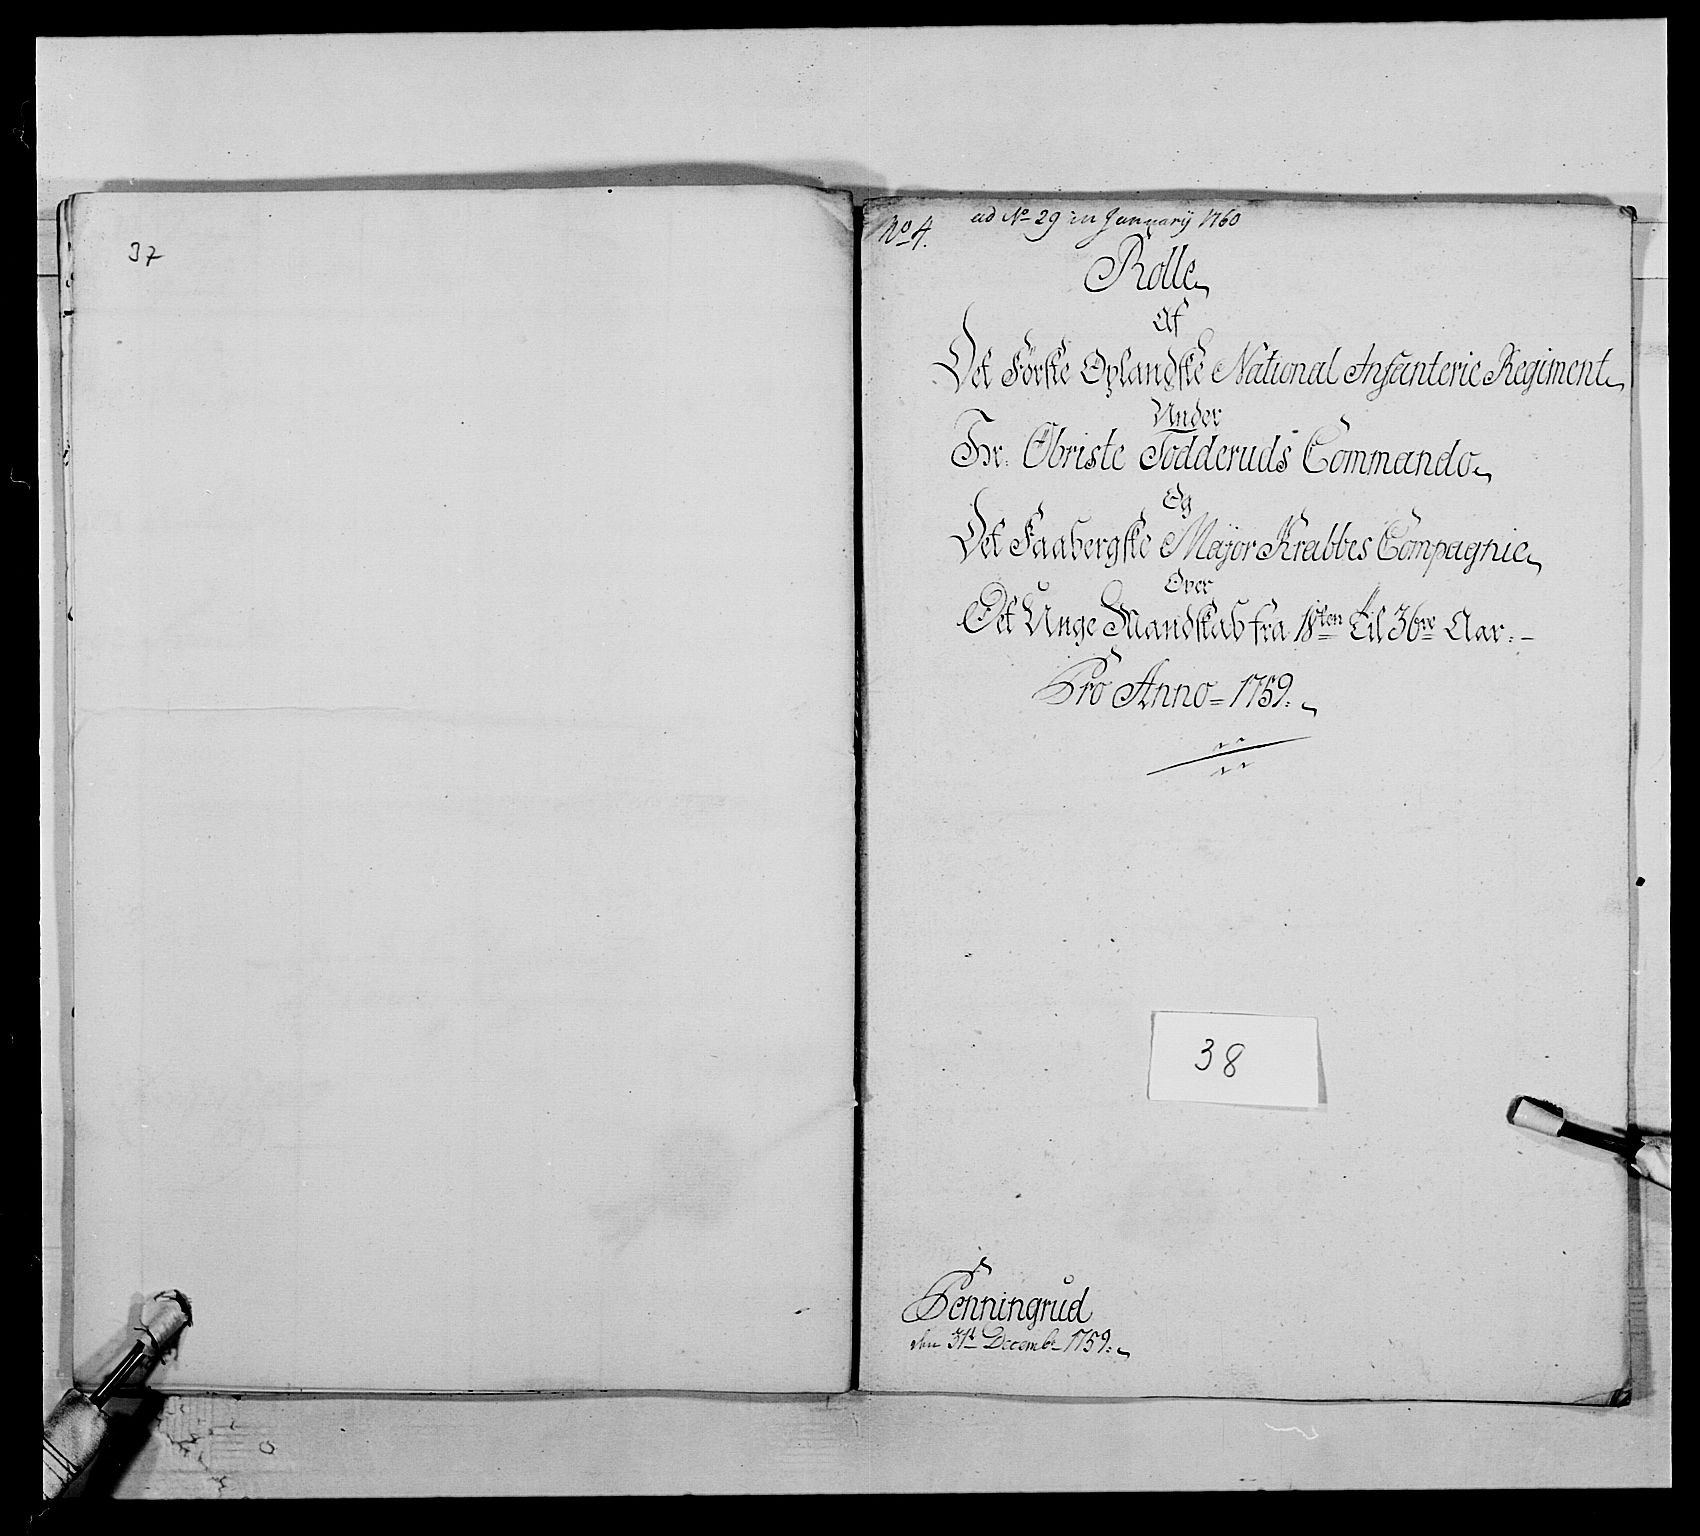 37
No 4.
ad No 29 in Januarij 1760
Rolle
Af
Det Førske Oplandske National Infanterie Regiment
Under
Hr: Obriste Todderuds Commando
Og
Det Faabergske Major Krabbes Compagnie
Over
Det Unge Mandskab fra 18ten til 36re Aar:
Pro Anno = 1759.
38
Penningrud
den 31t Decembr 1759.